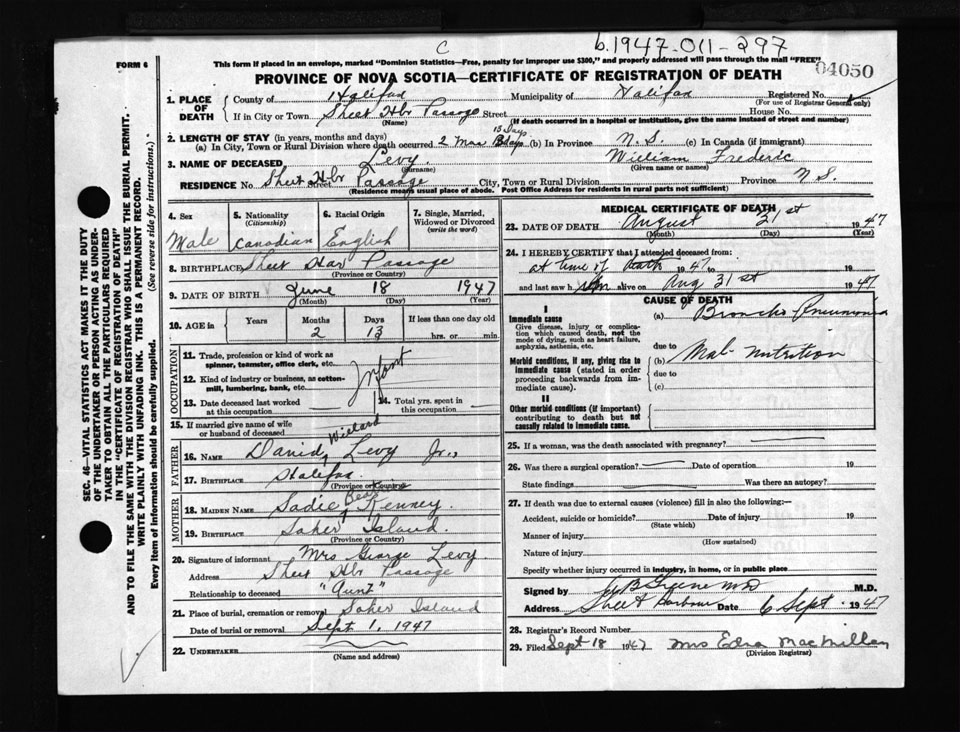 C
b.1947-011-297
This form if placed in an envelope, marked "Dominion Statistics—Free, penalty for improper use $300," and properly addressed will pass through the mail "FREE"
FORM 6
04050
PROVINCE OF NOVA SCOTIA—CERTIFICATE OF REGISTRATION OF DEATH
1. PLACE OF DEATH
County of Halifax Municipality of Halifax Registered No.
(For use of Registrar General only)
If in City or Town Sheet Hbr Passage Street House No.
(Name) (If death occurred in a hospital or institution, give the name instead of street and number)
2. LENGTH OF STAY (in years, months and days)
13 Days
(a) In City, Town or Rural Division where death occurred 2 Mos (b) In Province N.S. (c) In Canada (if immigrant)
3. NAME OF DECEASED Levy William Frederic
(Surname) (Given name or names)
RESIDENCE No Sheet Hbr Street Passage City, Town or Rural Division Province N S.
(Residence means usual place of abode. Post Office Address for residents in rural parts not sufficient)
4. Sex
Male
5. Nationality (Citizenship)
Canadian
6. Racial Origin
English
7. Single, Married, Widowed or Divorced (write the word)
8. BIRTHPLACE Sheet Har Passage
(Province or Country)
9. DATE OF BIRTH June 18 1947
(Month) (Day) (Year)
10. AGE in
Years Months Days If less than one day old
2 13 hrs. or min.
OCCUPATION
11. Trade, profession or kind of work as spinner, teamster, office clerk, etc.
Infant
12. Kind of industry or business, as cotton-mill, lumbering, bank, etc.
13. Date deceased last worked at this occupation
14. Total yrs. spent in this occupation
15. If married give name of wife or husband of deceased
FATHER
Willard
16. NAME David, Levy Jr.,
17. BIRTHPLACE Halifax
(Province or Country)
MOTHER
18. MAIDEN NAME Sadie Kenney.
19. BIRTHPLACE Sober Island
(Province or Country)
20. Signature of informant Mrs George Levy
Address Sheet Hbr Passage
Relationship to deceased "Aunt"
21. Place of burial, cremation or removal Sober Island
Date of burial or removal Sept 1, 1947
22. UNDERTAKER
(Name and address)
MEDICAL CERTIFICATE OF DEATH
23. DATE OF DEATH August 31st 1947
(Month) (Day) (Year)
24. I HEREBY CERTIFY that I attended deceased from:
at time of death 1947 to 19
and last saw him alive on Aug 31st 1947
CAUSE OF DEATH
I
Immediate cause
Give disease, injury or complication which caused death, not the mode of dying, such as heart failure, asphyxia, asthenia, etc.
(a) Broncho Pneumonia
due to
Morbid conditions, if any, giving rise to immediate cause (stated in order proceeding backwards from immediate cause).
(b) Mal-nutrition
due to
(c)
II
Other morbid conditions (if important) contributing to death but not causally related to immediate cause.
25. If a woman, was the death associated with pregnancy?
26. Was there a surgical operation? Date of operation 19
State findings Was there an autopsy?
27. If death was due to external causes (violence) fill in also the following:—
Accident, suicide or homicide? Date of injury 19
(State which)
Manner of injury
(How sustained)
Nature of injury
Specify whether injury occurred in industry, in home, or in public place
Signed by M.D.
Address Sheet Harbour Date 6 Sept. 1947
28. Registrar's Record Number
29. Filed Sept 18 1947 Mrs Edna MacMillan
(Division Registrar)
SEC. 46—VITAL STATISTICS ACT MAKES IT THE DUTY
OF THE UNDERTAKER OR PERSON ACTING AS UNDER-
TAKER TO OBTAIN ALL THE PARTICULARS REQUIRED
IN THE "CERTIFICATE OF REGISTRATION OF DEATH"
AND TO FILE THE SAME WITH THE DIVISION REGISTRAR WHO SHALL ISSUE THE BURIAL PERMIT.
WRITE PLAINLY WITH UNFADING INK. THIS IS A PERMANENT RECORD.
Every item of information should be carefully supplied. (See reverse side for instructions.)